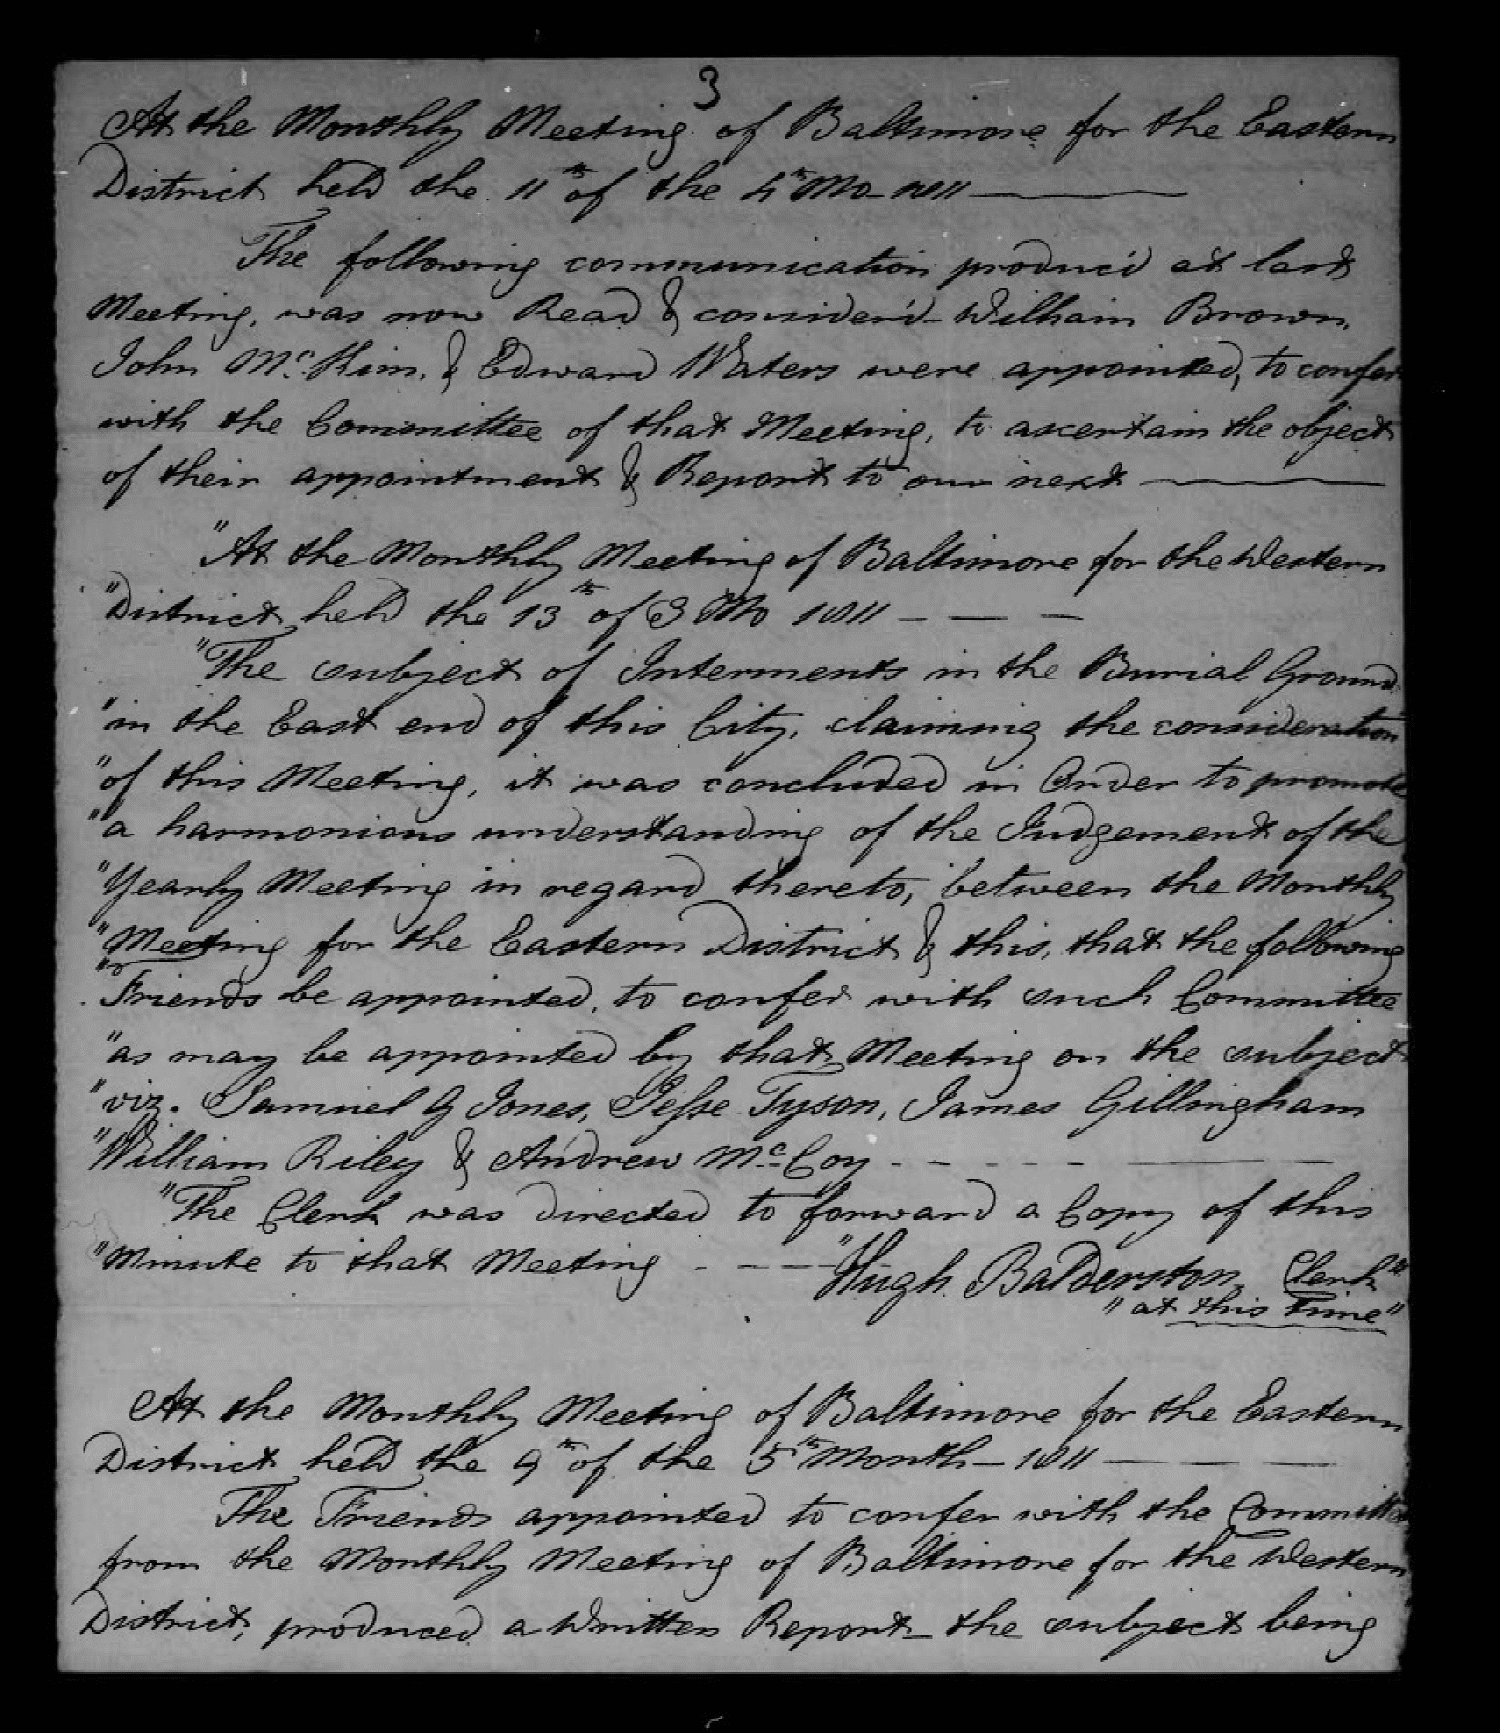 3
At the Monthly Meeting of Baltimore for the Eastern
District held the 11th of the 4th Mo- 1811
The following communication produc'd at last
Meeting, was now Read & consider'd - William Brown,
John Mc. Kim, & Edward Waters were appointed, to confer
with the Committee of that Meeting, to ascertain the object
of their appointment & Report to our next
"At the Monthly Meeting of Baltimore for the Western
"District held the 13th of 3 Mo 1811 - - -
"The subject of Interments in the Burial Ground
"in the East end of this City, claiming the consideration
"of this Meeting, it was concluded in Order to promote
"a harmonious understanding of the Judgement of the
"Yearly Meeting in regard thereto, between the Monthly
"Meeting for the Eastern District & this, that the following
"Friends be appointed, to confer with such Committee
"as may be appointed by that Meeting on the subject
"viz. Samuel G Jones, Jesse Tyson, James Gillingham
"William Riley & Andrew McCoy - - - - -
"The Clerk was directed to forward a Copy of this
"Minute to that Meeting - - - "Hugh Balderston Clerk"
"at this Time"
At the Monthly Meeting of Baltimore for the Eastern
District held the 9th of the 5th Month - 1811 - - -
The Friends appointed to confer with the Committee
from the Monthly Meeting of Baltimore for the Western
District, produced a Written Report - the subject being